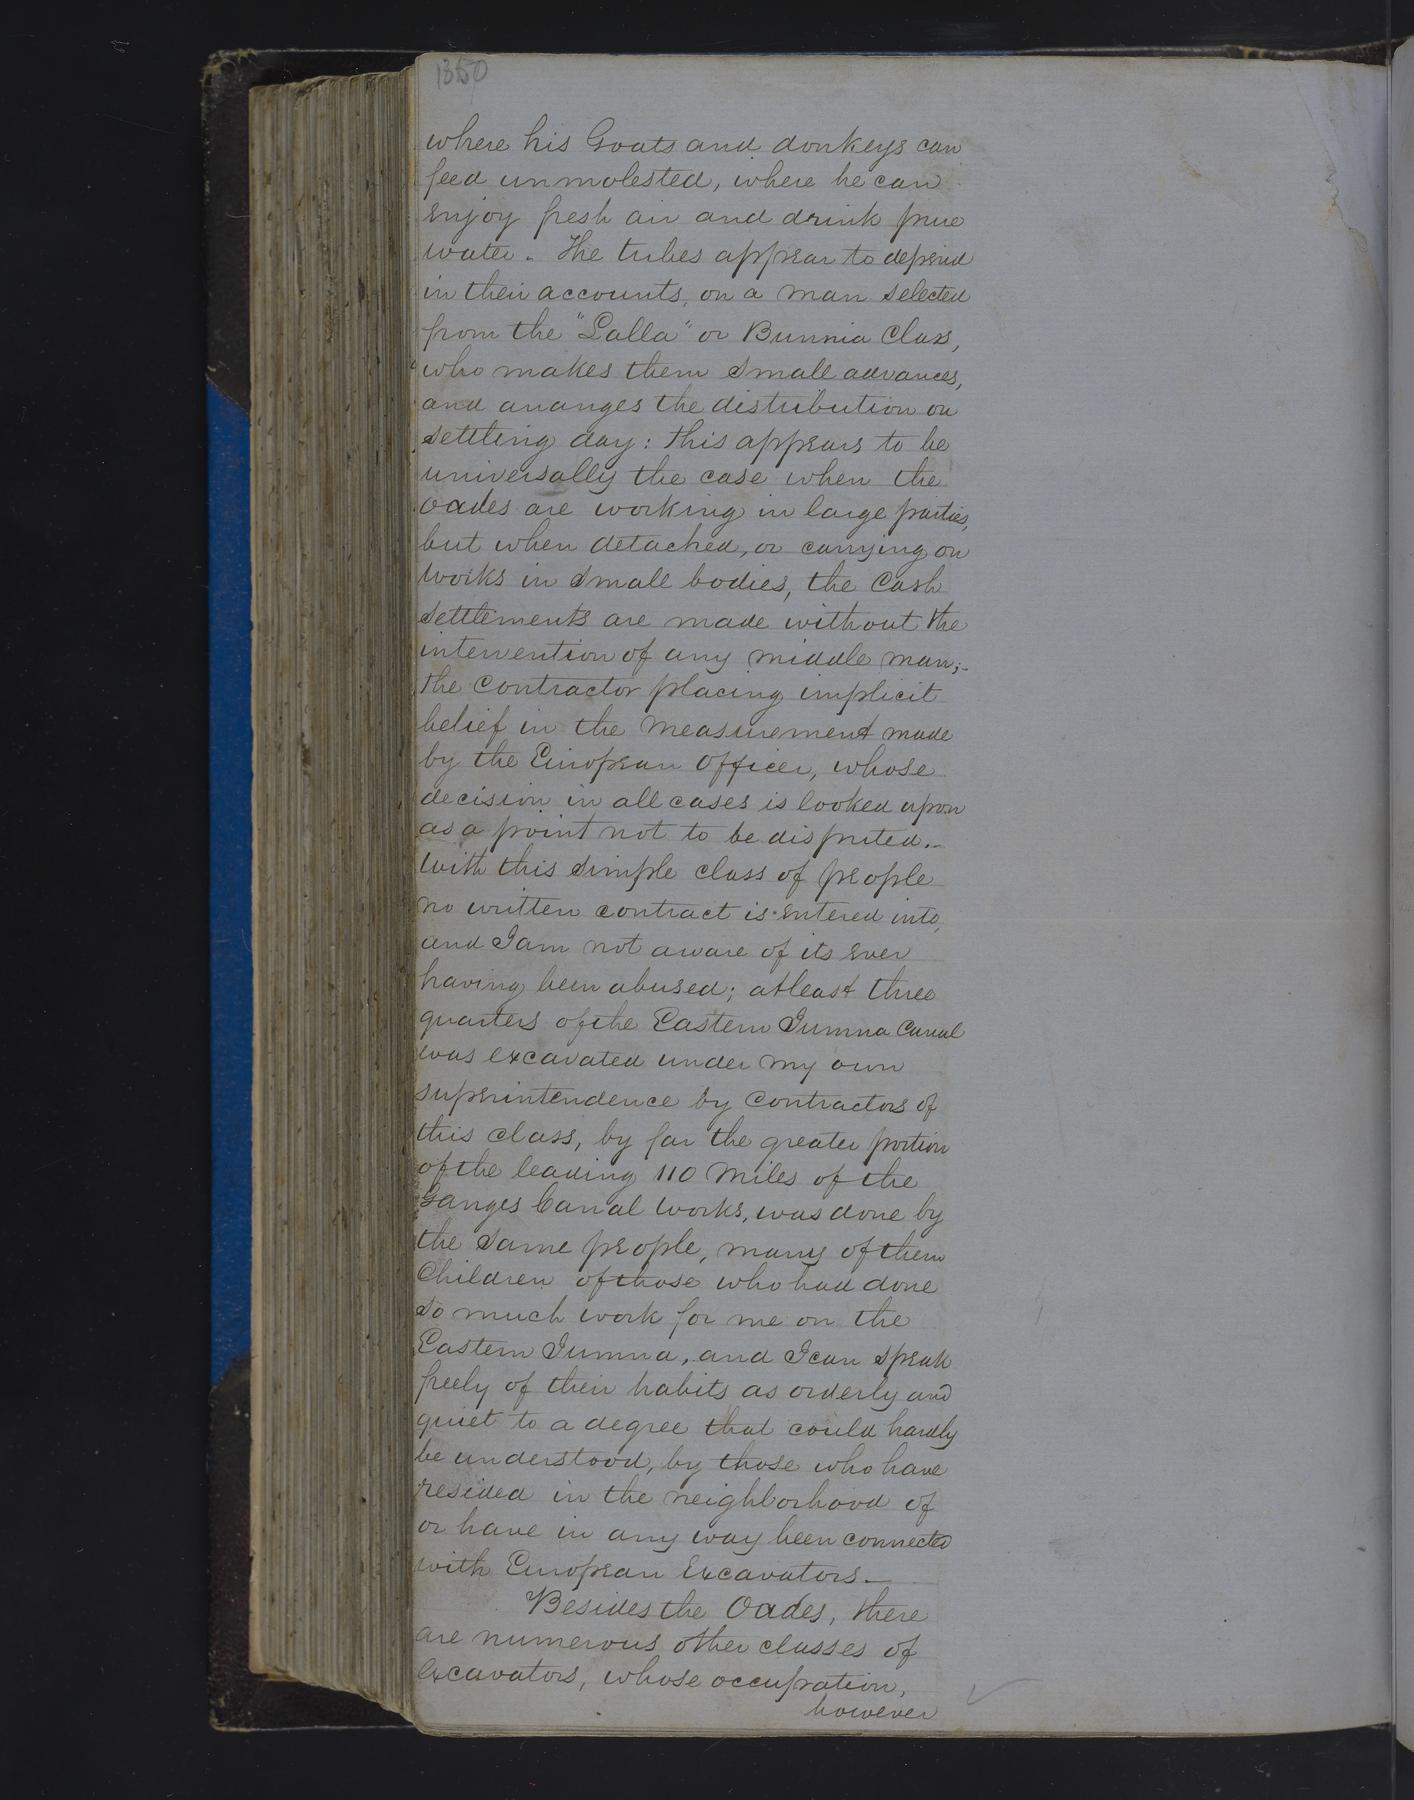 1350
where his Goats and donkeys can
feed unmolested, where he can
enjoy fresh air and drink pure
water. The tribes appear to depend
in their accounts, on a man selected
from the "Lalla" or Bunnia Class,
who makes them small advances,
and arranges the distribution on
settling day: this appears to be
universally the case when the
Oades are working in large parties,
but when detached, or carrying on
works in small bodies, the Cash
settlements are made without the
intervention of any middle man;-
the Contractor placing implicit
belief in the measurement made
by the European Officer, whose
decision in all cases is looked upon
as a point not to be disputed.-
With this simple class of people
no written contract is entered into,
and I am not aware of its ever
having been abused; at least three
quarters of the Eastern Jumna Canal
was excavated under my own
superintendence by Contractors of
this class, by far the greater portion
of the leading 110 Miles of the
Ganges Canal works, was done by
the same people, many of them
Children of those who had done
so much work for me on the
Eastern Jumna, and I can speak
freely of their habits as orderly and
quiet to a degree that could hardly
be understood, by those who have
resided in the neighborhood of
or have in any way been connected
with European Excavators.-
Besides the Oades, there
are numerous other classes of
Excavators, whose occupation,
however